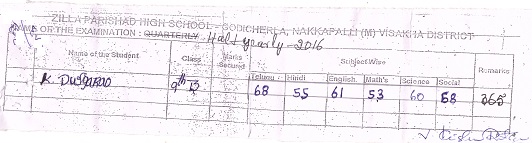 ZILLA PARISHAD HIGH SCHOOL - GODICHERLA, NAKKAPALLI (M) VISAKHA DISTRICT
NAME OF THE EXAMINATION : QUARTERLY Half yearly - 2016
Name of the Student Class Marks Secured Subject Wise Remarks
Telugu Hindi English Math's Science Social
K. Durgarao 9th B 68 55 61 53 60 68 365